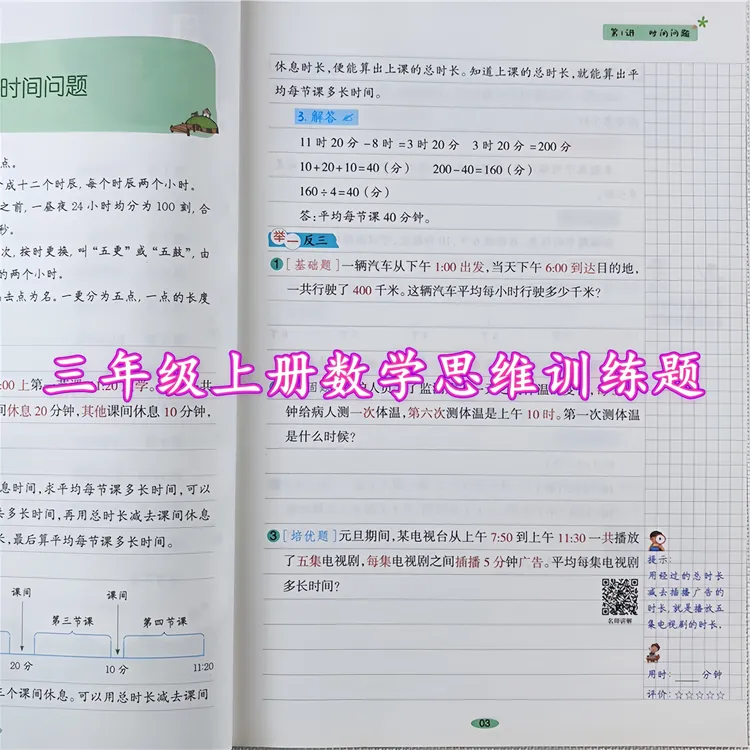 时间问题
点。
成十二个时辰，每个时辰两个小时。
之前，一昼夜24小时均分为100刻，合
秒。
次，按时更换，叫“五更”或“五鼓”，由
的两个小时。
去点为名。一更分为五点，一点的长度
:00上第
学。
共
间休息20分钟，其他课间休息10分钟，
息时间，求平均每节课多长时间，可以
多长时间，再用总时长减去课间休息
长，最后算平均每节课多长时间。
课间
课间
第三节课
第四节课
20分
10分
11:20
三个课间休息。可以用总时长减去课间
第1讲 时间问题
休息时长，便能算出上课的总时长。知道上课的总时长，就能算出平
均每节课多长时间。
3.解答
11时20分-8时=3时20分 3时20分=200分
10+20+10=40（分） 200-40=160（分）
160÷4=40（分）
答：平均每节课40分钟。
举一反三
1［基础题］一辆汽车从下午1:00出发，当天下午6:00到达目的地，
一共行驶了400千米。这辆汽车平均每小时行驶多少千米？
三年级上册数学思维训练题
钟给病人测一次体温，第六次测体温是上午10时。第一次测体温
是什么时候？
3［培优题］元旦期间，某电视台从上午7:50到上午11:30一共播放
了五集电视剧，每集电视剧之间插播5分钟广告。平均每集电视剧
多长时间？
名师讲解
提示：
用经过的总时长
减去插播广告的
时长，就是播放五
集电视剧的时长。
用时：____分钟
评价：☆☆☆☆☆
03